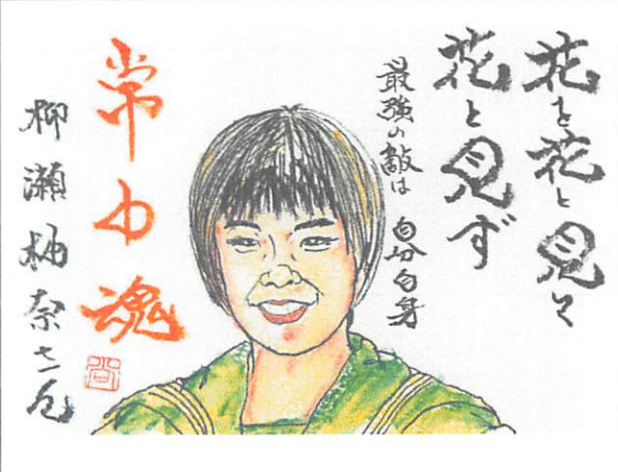 花を花と見て
花と見ず
最強の敵は 自分自身
常中魂
柳瀬柚奈さん